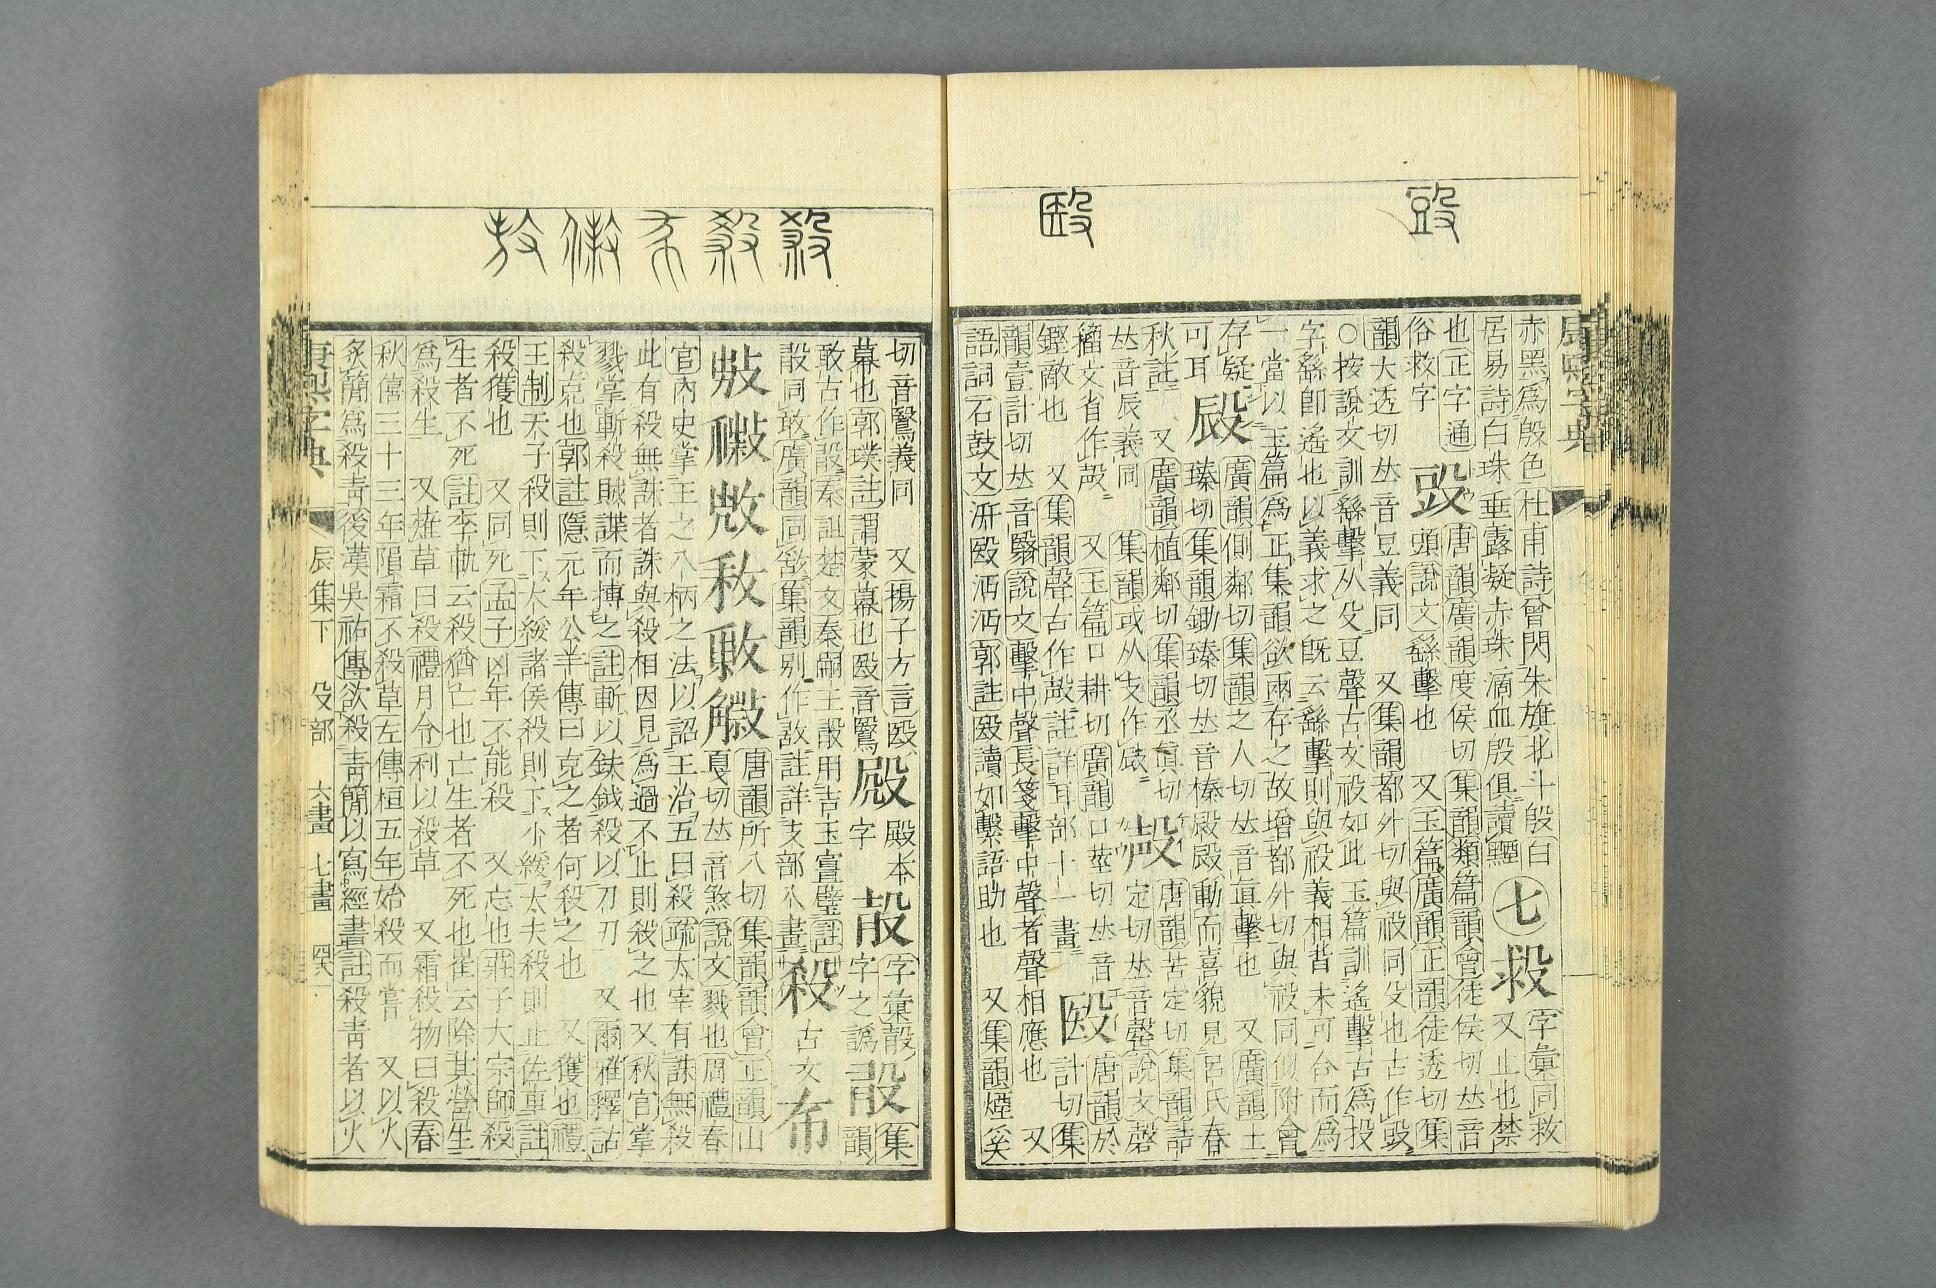 赤黑爲殷色杜甫詩曾閃朱旗北斗殷白
居易詩白珠垂露凝赤珠滴血殷俱讀黫
七
殺
字彙同救
又止也禁
也正字通
俗救字
豛
唐韻廣韻度侯切集韻類篇韻會徒侯切𠀤音
頭說文繇擊也 又玉篇廣韻正韻徒透切集
韻大透切𠀤音豆義同 又集韻都外切與祋同殳也古作豛
○按說文訓繇擊从殳豆聲古文祋如此玉篇訓遙擊古爲投
字繇卽遙也以義求之旣云繇擊則與祋義相背未可合而爲
一當以玉篇爲正集韻欲兩存之故增都外切與祋同似附會
存疑
廣韻側鄰切集韻之人切𠀤音眞擊也 又廣韻士
可耳
臻切集韻鋤臻切𠀤音榛殿殿動而喜貌見呂氏春
秋註 又廣韻植鄰切集韻丞眞切
𠀤音辰義同 集韻或从攴作
唐韻苦定切集韻詰
定切𠀤音罄說文磬
籀文省作殸 又玉篇口耕切廣韻口莖切𠀤音
鏗敵也 又集韻聲古作殸註詳耳部十一畫
殹
唐韻於
計切集
韻壹計切𠀤音翳說文擊中聲長箋擊中聲者聲相應也 又
語詞石鼓文汧殹沔沔郭註殹讀如繫語助也 又集韻煙奚
康熙字典
切音鷖義同 又揚子方言殹
幕也郭璞註謂蒙幕也殹音鷖
殿
殿本
字
字彙
字之譌
集
韻
敢古作 秦詛楚文秦嗣王 用吉玉宣璧註
同敢廣韻同 集韻別作 註詳攴部八畫
殺
古文
布
唐韻所八切集韻韻會正韻山
戛切𠀤音煞說文戮也周禮春
官內史掌王之八柄之法以詔王治五曰殺疏太宰有誅無殺
此有殺無誅者誅與殺相因見爲過不止則殺之也又秋官掌
戮掌斬殺賊諜而搏之註斬以鈇鉞殺以刀刃 又爾雅釋詁
殺克也郭註隱元年公羊傳曰克之者何殺之也 又獲也禮
王制天子殺則下大綏諸侯殺則下小綏大夫殺則止佐車註
殺獲也 又同死孟子凶年不能殺 又忘也莊子大宗師殺
生者不死註李軌云殺猶亡也亡生者不死也崔云除其營生
爲殺生 又薙草曰殺禮月令利以殺草 又霜殺物曰殺春
秋僖三十三年隕霜不殺草左傳桓五年始殺而嘗 又以火
炙簡爲殺靑後漢吳祐傳欲殺靑簡以寫經書註殺靑者以火
康熙字典
辰集下 殳部 六畫 七畫